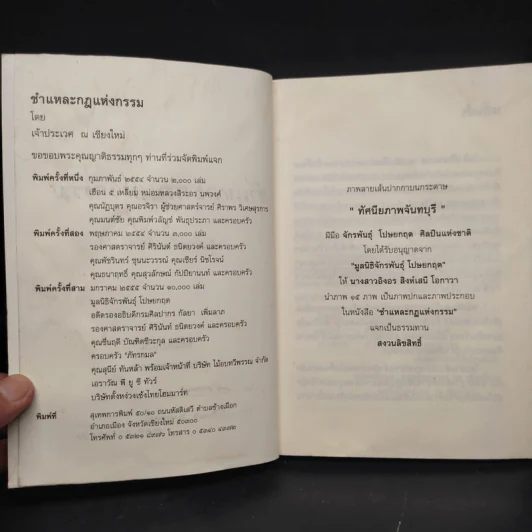 ชำแหละกฎแห่งกรรม
โดย
เจ้าประเวศ ณ เชียงใหม่
ขอขอบพระคุณญาติธรรมทุกๆ ท่านที่ร่วมจัดพิมพ์แจก
พิมพ์ครั้งที่หนึ่ง กุมภาพันธ์ ๒๕๕๔ จำนวน ๒,๐๐๐ เล่ม
เฮือน ๕ เหลี่ยม หม่อมหลวงสิระอร นพวงศ์
คุณณัฏบุตร คุณอรจิรา ผู้ช่วยศาสตร์จารย์ ศิราพร วิเศษสุรการ
คุณมนต์ชัย คุณพิมพ์วลัญช์ พันธุประภา และครอบครัว
พิมพ์ครั้งที่สอง พฤษภาคม ๒๕๕๔ จำนวน ๓,๐๐๐ เล่ม
รองศาสตราจารย์ ศิรินันต์ ธนิตยวงศ์ และครอบครัว
คุณพัชรินทร์ ชุนนะวรรณ์ คุณเชียร์ นิชโรจน์
คุณธนาฤทธิ์ คุณสุวลักษณ์ กัปปิยานนต์ และครอบครัว
พิมพ์ครั้งที่สาม มกราคม ๒๕๕๕ จำนวน ๑๐,๐๐๐ เล่ม
มูลนิธิจักรพันธุ์ โปษยกฤต
อดีตรองอธิบดีกรมศิลปากร กัลยา เพิ่มลาภ
รองศาสตราจารย์ ศิรินันต์ ธนิตยวงศ์ และครอบครัว
คุณชื่นฤดี บัณฑิตชีวะกุล และครอบครัว
ครอบครัว "ภัทรกมล"
คุณสุนีย์ ทันหล้า พร้อมเจ้าหน้าที่ บริษัท ไม้อบทวีพรรณ จำกัด
เอราวัณ พี ยู ซี ทัวร์
บริษัทตั้งหง่วงเซ้งไทยโฮมมาร์ท
พิมพ์ที่ สุเทพการพิมพ์ ๕๐/๑๐ ถนนหัสดิเสวี ตำบลช้างเผือก
อำเภอเมือง จังหวัดเชียงใหม่ ๕๐๓๐๐
โทรศัพท์ ๐ ๕๓๒๑ โทรสาร ๐ ๕๓๔๐
ภาพลายเส้นปากกาบนกระดาษ
" ทัศนียภาพจันทบุรี "
ฝีมือ จักรพันธุ์ โปษยกฤต ศิลปินแห่งชาติ
โดยได้รับอนุญาตจาก
"มูลนิธิจักรพันธุ์ โปษยกฤต"
ให้ นางสาวอิงอร สิงห์เสนี โอกาวา
นำภาพ ๑๕ ภาพ เป็นภาพปกและภาพประกอบ
ในหนังสือ "ชำแหละกฎแห่งกรรม"
แจกเป็นธรรมทาน
สงวนลิขสิทธิ์